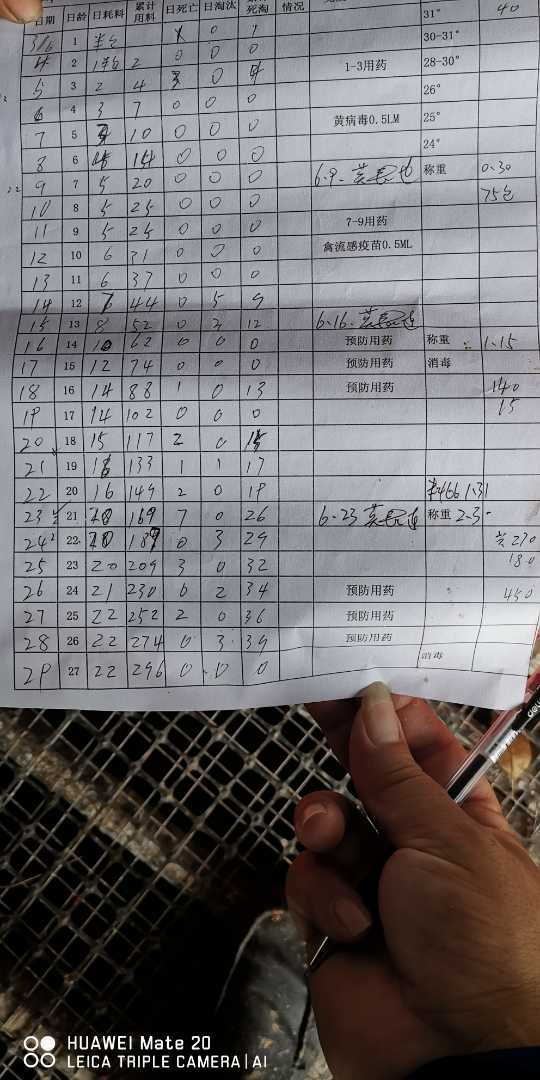 日期 日龄 日耗料 累计用料 日死亡 日淘汰 死淘 情况
31° 40
3/6 1 半包 0
30-31°
4 2 2 0 0 0
1-3用药 28-30°
5 3 2 4 0
26°
6 4 3 7 0 0 0
黄病毒0.5LM 25°
7 5 10 0 0 0
24°
8 6 14 0 0 0
9 7 5 20 0 0 0 6.9. 称重 0.30
10 8 5 25 0 0 0 75包
11 9 5 25 0 0 0 7-9用药
12 10 6 31 0 0 0 禽流感疫苗0.5ML
13 11 6 37 0 0 0
14 12 7 44 0 5 9
15 13 8 52 0 3 12 6.16.
16 14 10 62 0 0 0 预防用药 称重 1.15
17 15 12 74 0 0 0 预防用药 消毒
18 16 14 88 1 0 13 预防用药 140
15
19 17 14 102 0 0 0
20 18 15 117 2 0 15
21 19 16 133 1 1 17
22 20 16 149 2 0 19 1.31
23 21 169 7 0 26 6.23 称重 2.3
24 22 189 0 3 29 270
25 23 20 209 3 0 32 180
26 24 21 230 0 2 34 预防用药 450
27 25 22 252 2 0 36 预防用药
28 26 22 274 0 3 39 预防用药
29 27 22 296 0 0 0 消毒
deli
HUAWEI Mate 20
LEICA TRIPLE CAMERA | AI